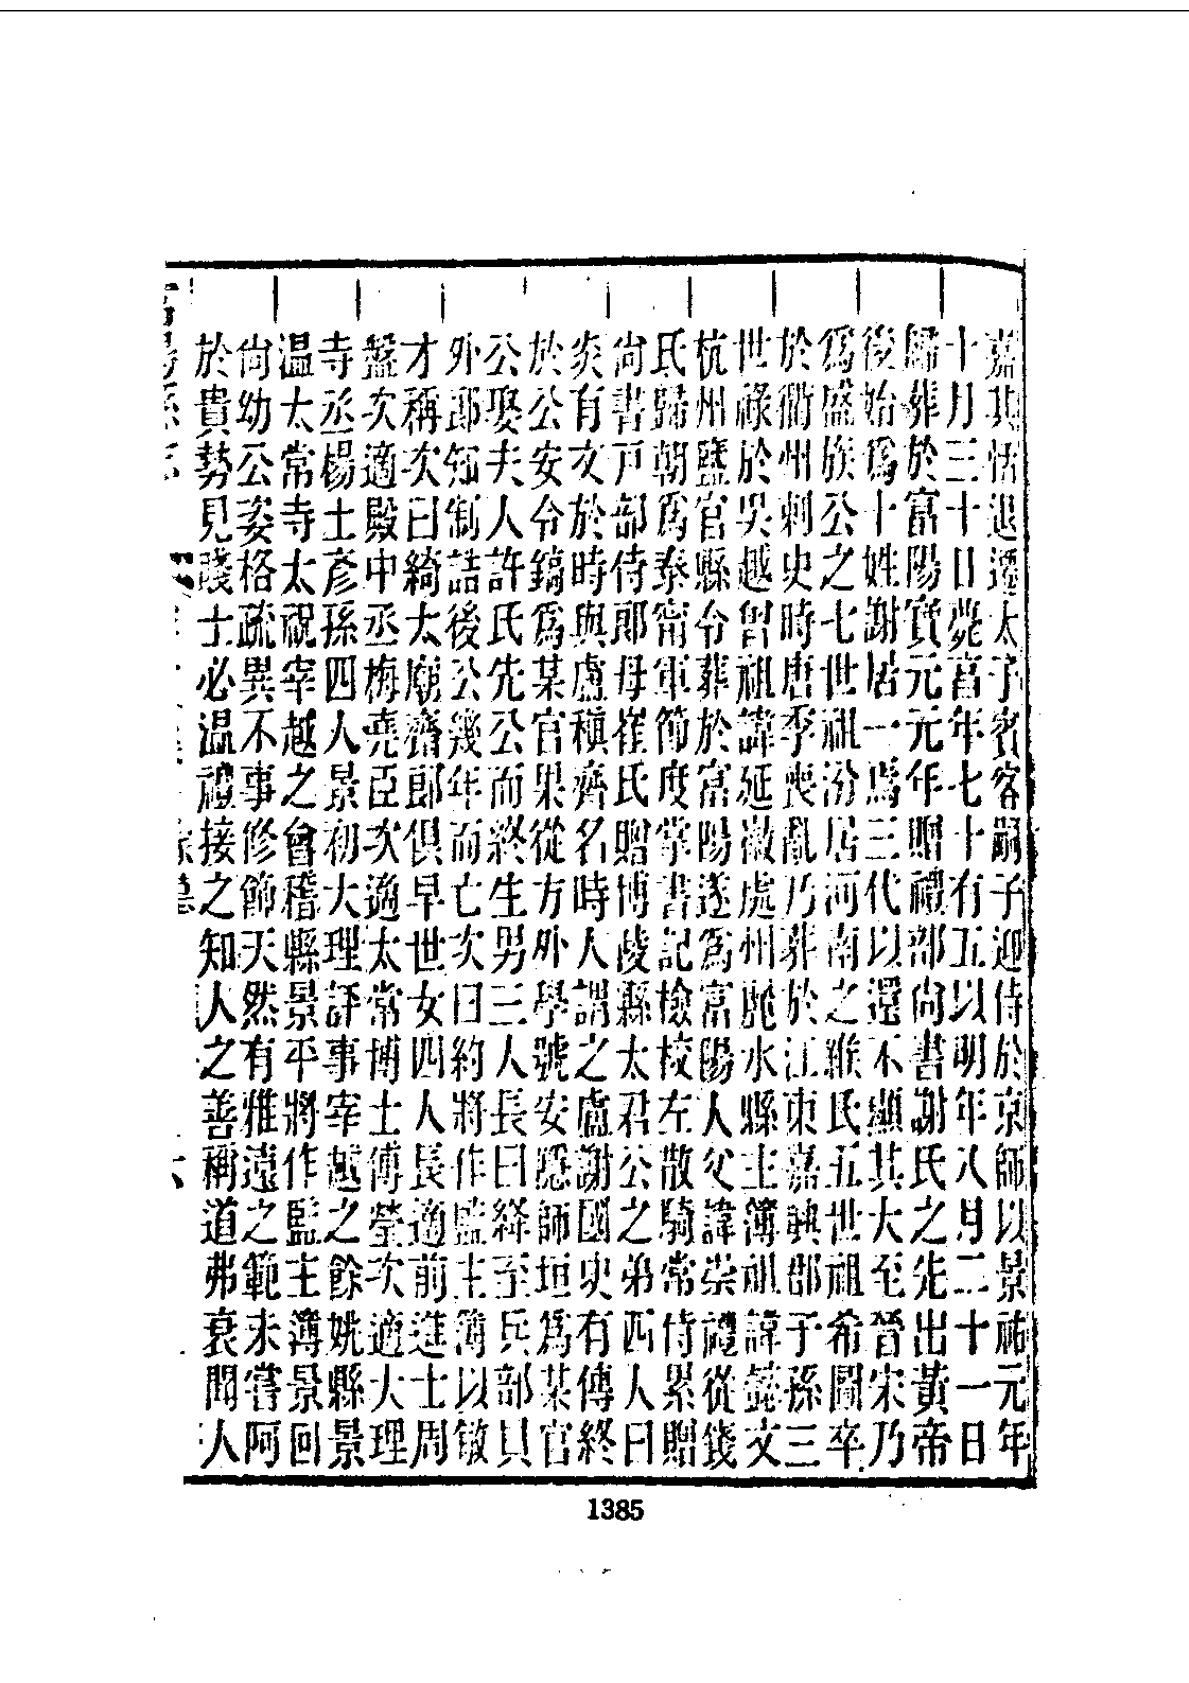 嘉其恬退遷太子賓客嗣子迎侍於京師以景祐元年
十月三十日薨富年七十有五以明年八月二十一日
歸葬於富陽寶元元年贈禮部尚書謝氏之先出黃帝
後始爲十姓謝居一焉三代以還不顯其大至晉宋乃
爲盛族公之七世祖汾居河南之緱氏五世祖希圖卒
於衢州刺史時唐季喪亂乃葬於江東嘉興郡子孫三
世祿於吳越曾祖諱延徽處州麗水縣主簿祖諱懿文
杭州鹽官縣令葬於富陽遂爲富陽人父諱崇禮從錢
氏歸朝爲泰甯軍節度掌書記檢校左散騎常侍累贈
尚書戸部侍郎母崔氏贈博陵縣太君公之弟四人曰
炎有文於時與盧稹齊名時人謂之盧謝國史有傳終
於公安令鎬爲某官果從方外學號安隱師垣爲某官
公娶夫人許氏先公而終生男三人長曰絳至兵部員
外郎知制誥後公幾年而亡次曰約將作監主簿以敏
才稱次曰綺太廟齋郎俱早世女四人長適前進士周
盤次適殿中丞梅堯臣次適太常博士傅瑩次適大理
寺丞楊士彥孫四人景初大理評事宰越之餘姚縣景
温太常寺太祝宰越之會稽縣景平將作監主簿景回
尚幼公姿格疏異不事修飾天然有雅遠之範未嘗阿
於貴勢見賤士必温禮接之知人之善稱道弗衰聞人
1385